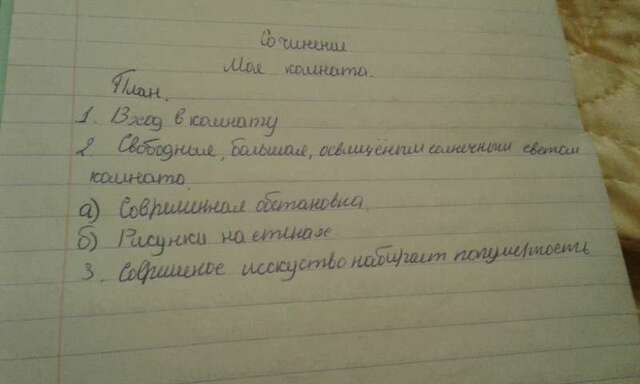 Сочинение
Моя комната.
План.
1. Вход в комнату
2. Свободные, большая, освещённым солнечным светом
комната.
а) Современная обстановка.
б) Рисунки на стенах
3. Совршеное исскуство набирает популярность